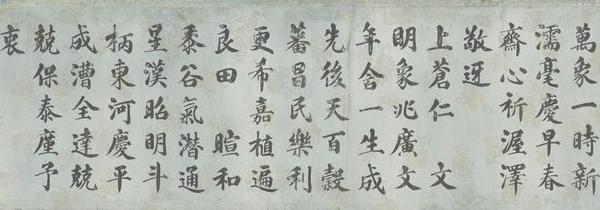 萬象一時新
濡毫慶早春
齋心祈渥澤
敬迓
上蒼仁 文
明象兆廣文
年含一生成
先後天百穀
蕃昌民樂利
更希嘉植遍
良田 暄和
黍谷氣潛通
星漢昭明斗
柄東河慶平
成漕全達兢
兢保泰廑予
衷